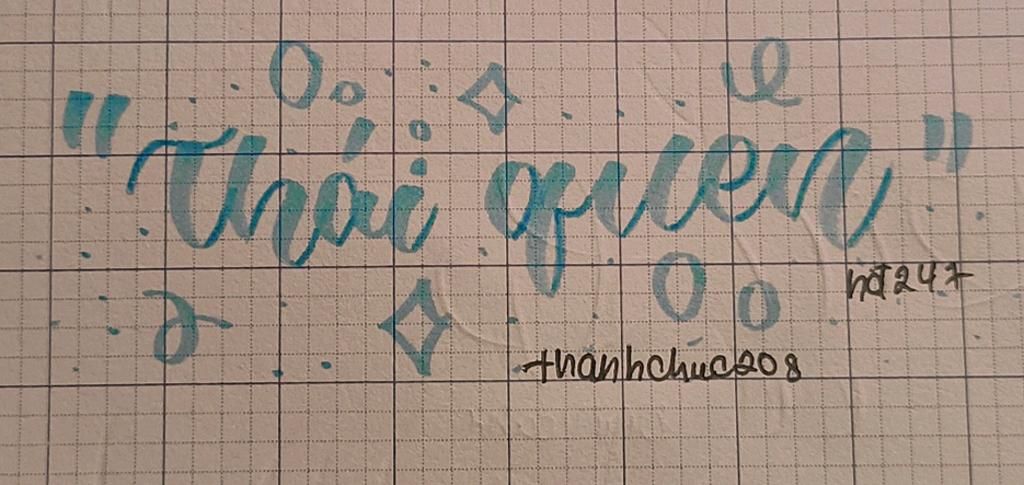 "Thái quen"
hđ247
thanhchuc208